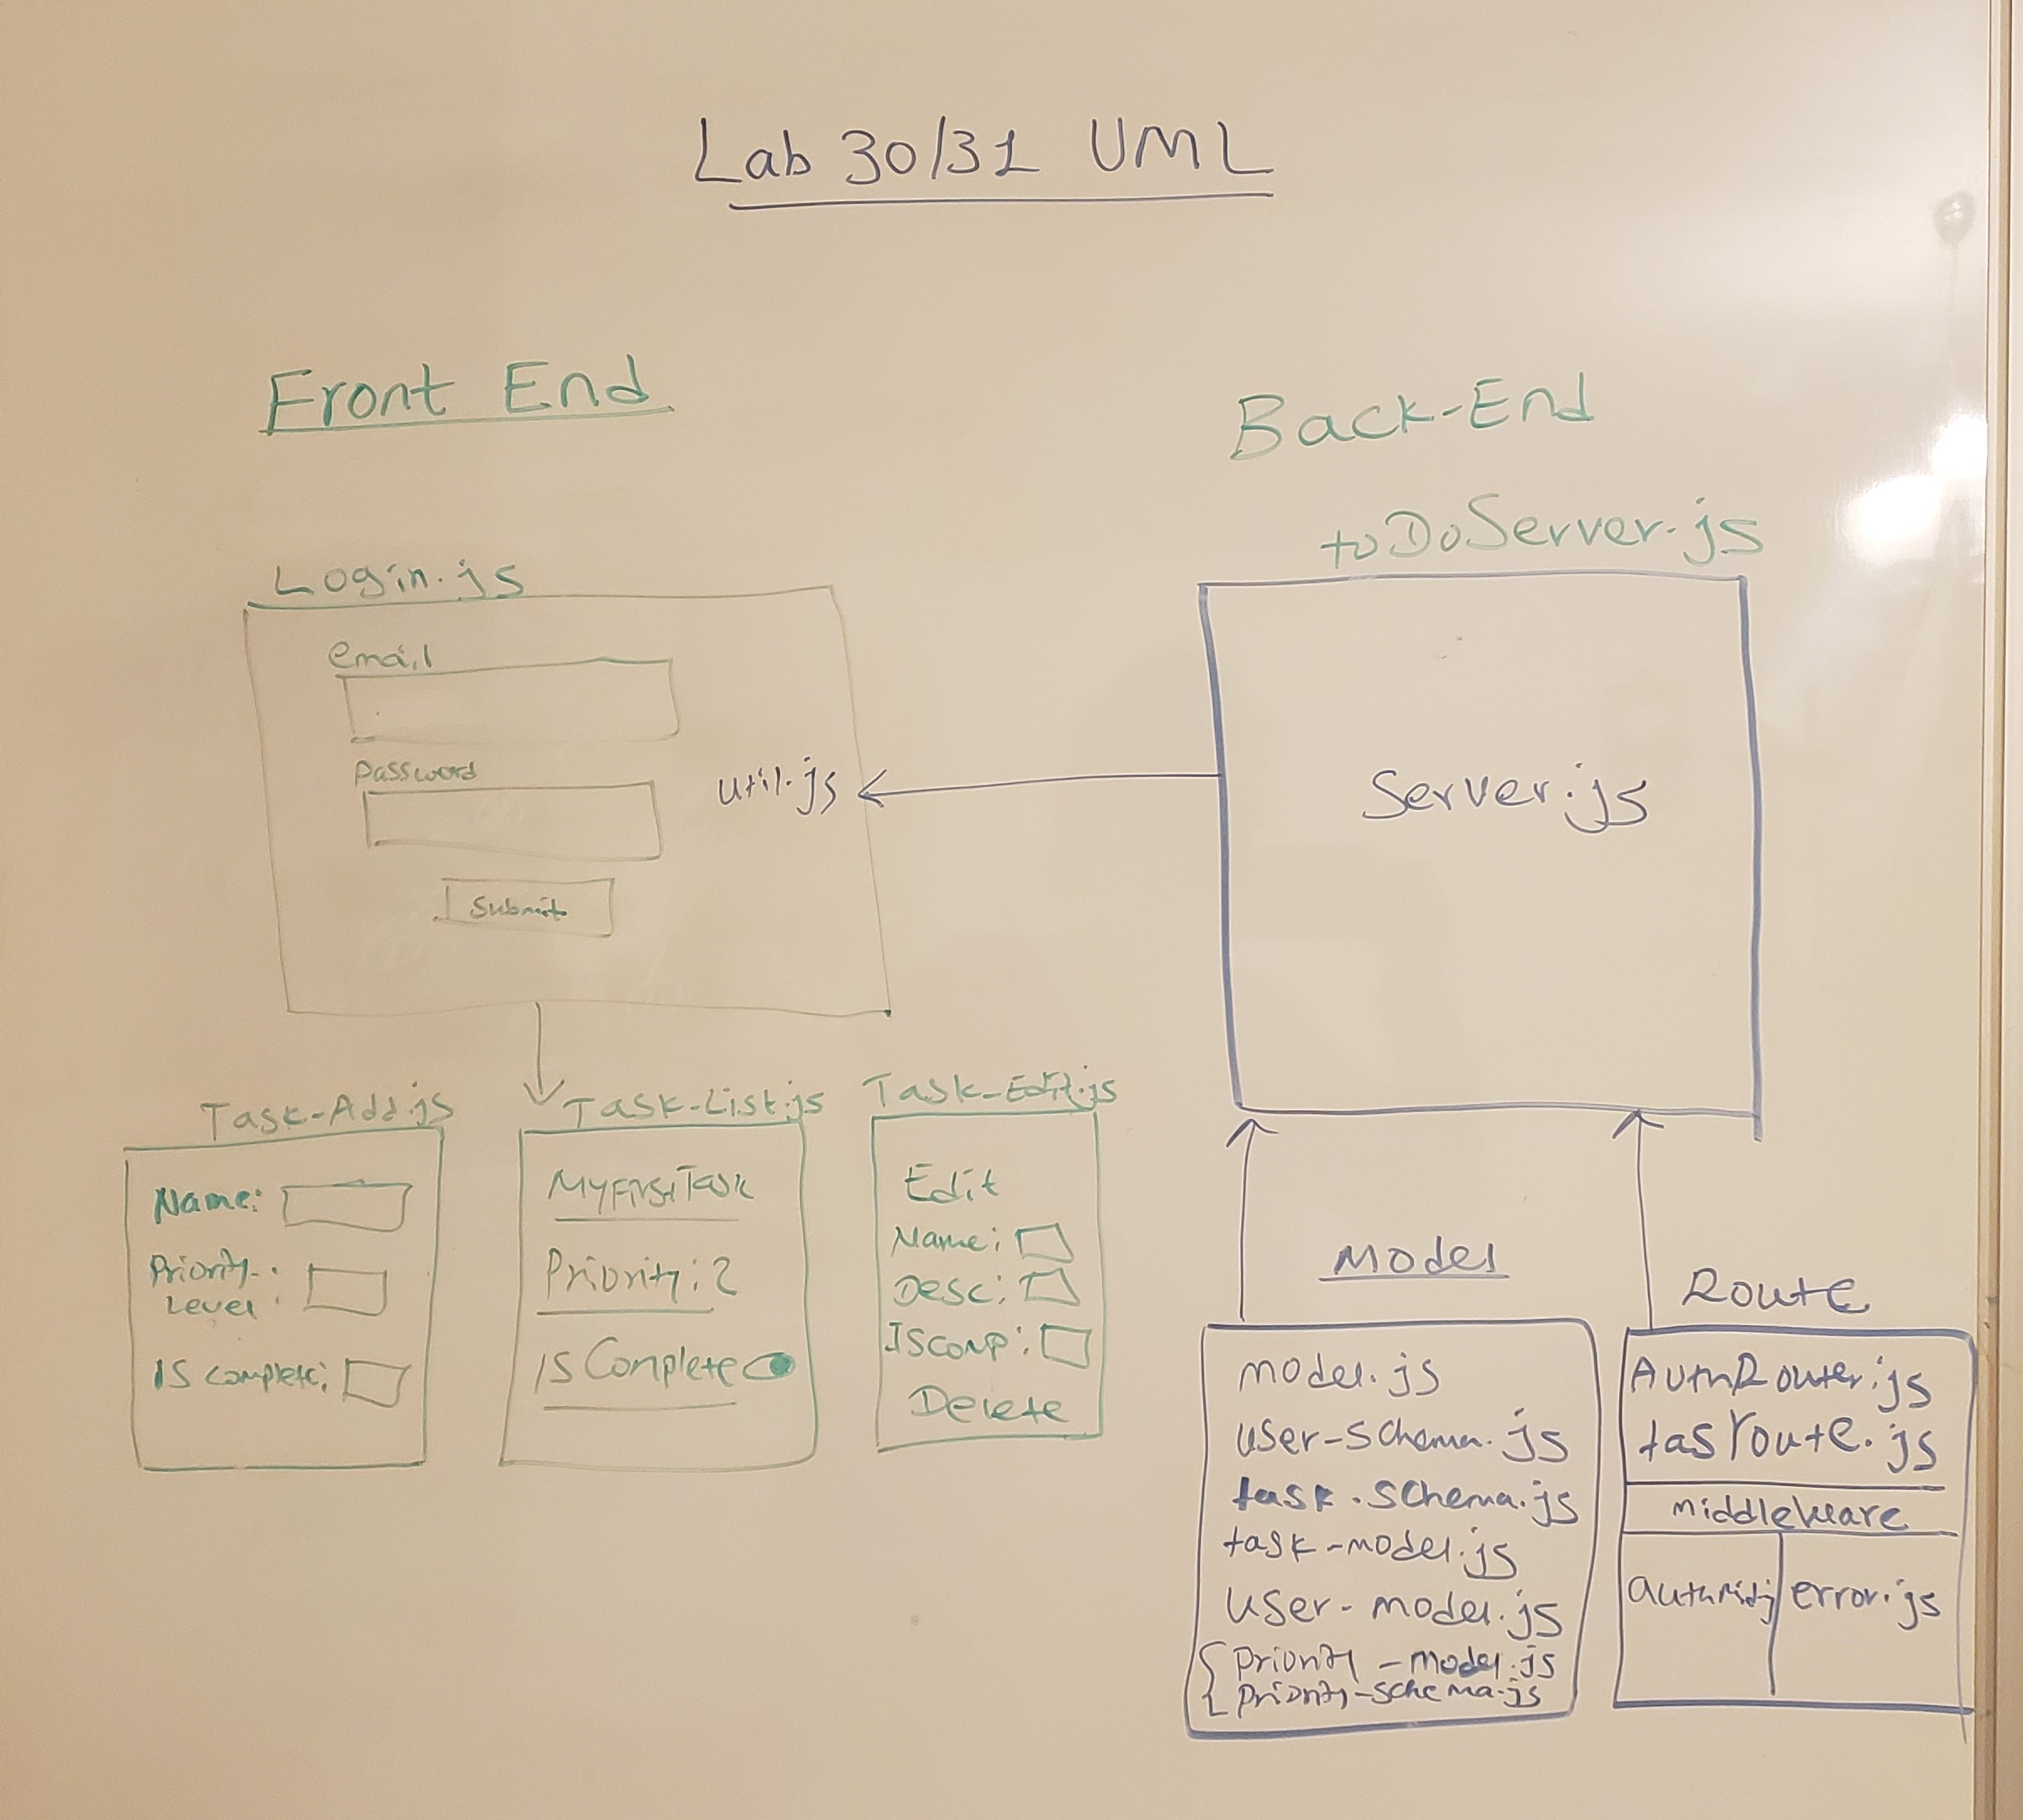 Lab 30/31 UML
Front End
Login.js
email
password
util.js
Submit
Task-Add.js
Name:
Priority
Level:
IS complete:
Task-List.js
MyFirstTask
Priority:2
IS Complete
Task-Edit.js
Edit
Name:
Desc:
IScomp:
Delete
Back-End
toDoServer.js
Server.js
Model
model.js
user-schema.js
task.schema.js
task-model.js
user-model.js
{ Priority-model.js
Priority-schema.js
Route
AuthRouter.js
tasroute.js
middleware
error.js